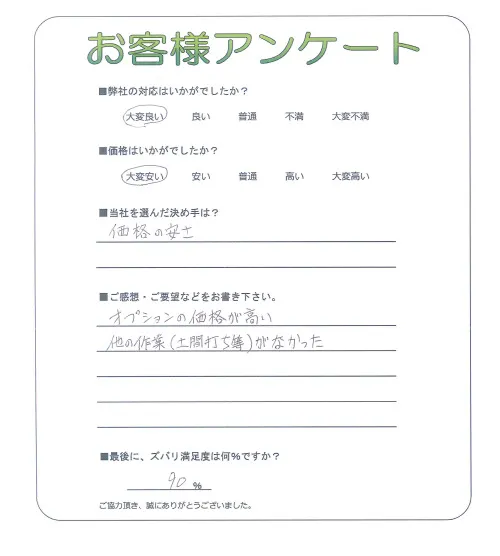 お客様アンケート
■弊社の対応はいかがでしたか？
大変良い 良い 普通 不満 大変不満
■価格はいかがでしたか？
大変安い 安い 普通 高い 大変高い
■当社を選んだ決め手は？
価格の安さ
■ご感想・ご要望などをお書き下さい。
オプションの価格が高い
他の作業(土間打ち等)がなかった
■最後に、ズバリ満足度は何％ですか？
90 ％
ご協力頂き、誠にありがとうございました。